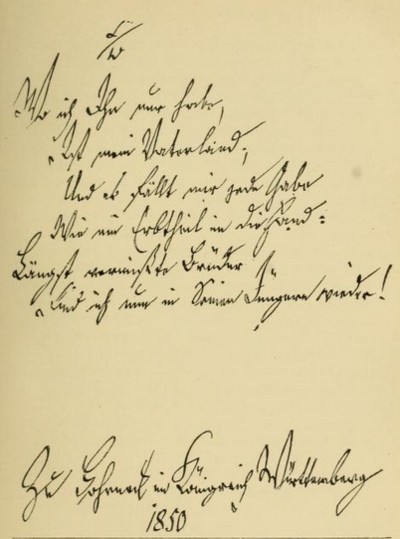 Wo ich Ihn nur habe,
Ist mein Vaterland;
Und es fällt mir jede Gabe
Wie ein Erbtheil in die Hand:
Längst vermißte Brüder
Find ich nun in Seinen Jüngern wieder!
Zu im Königreich Württemberg
1850